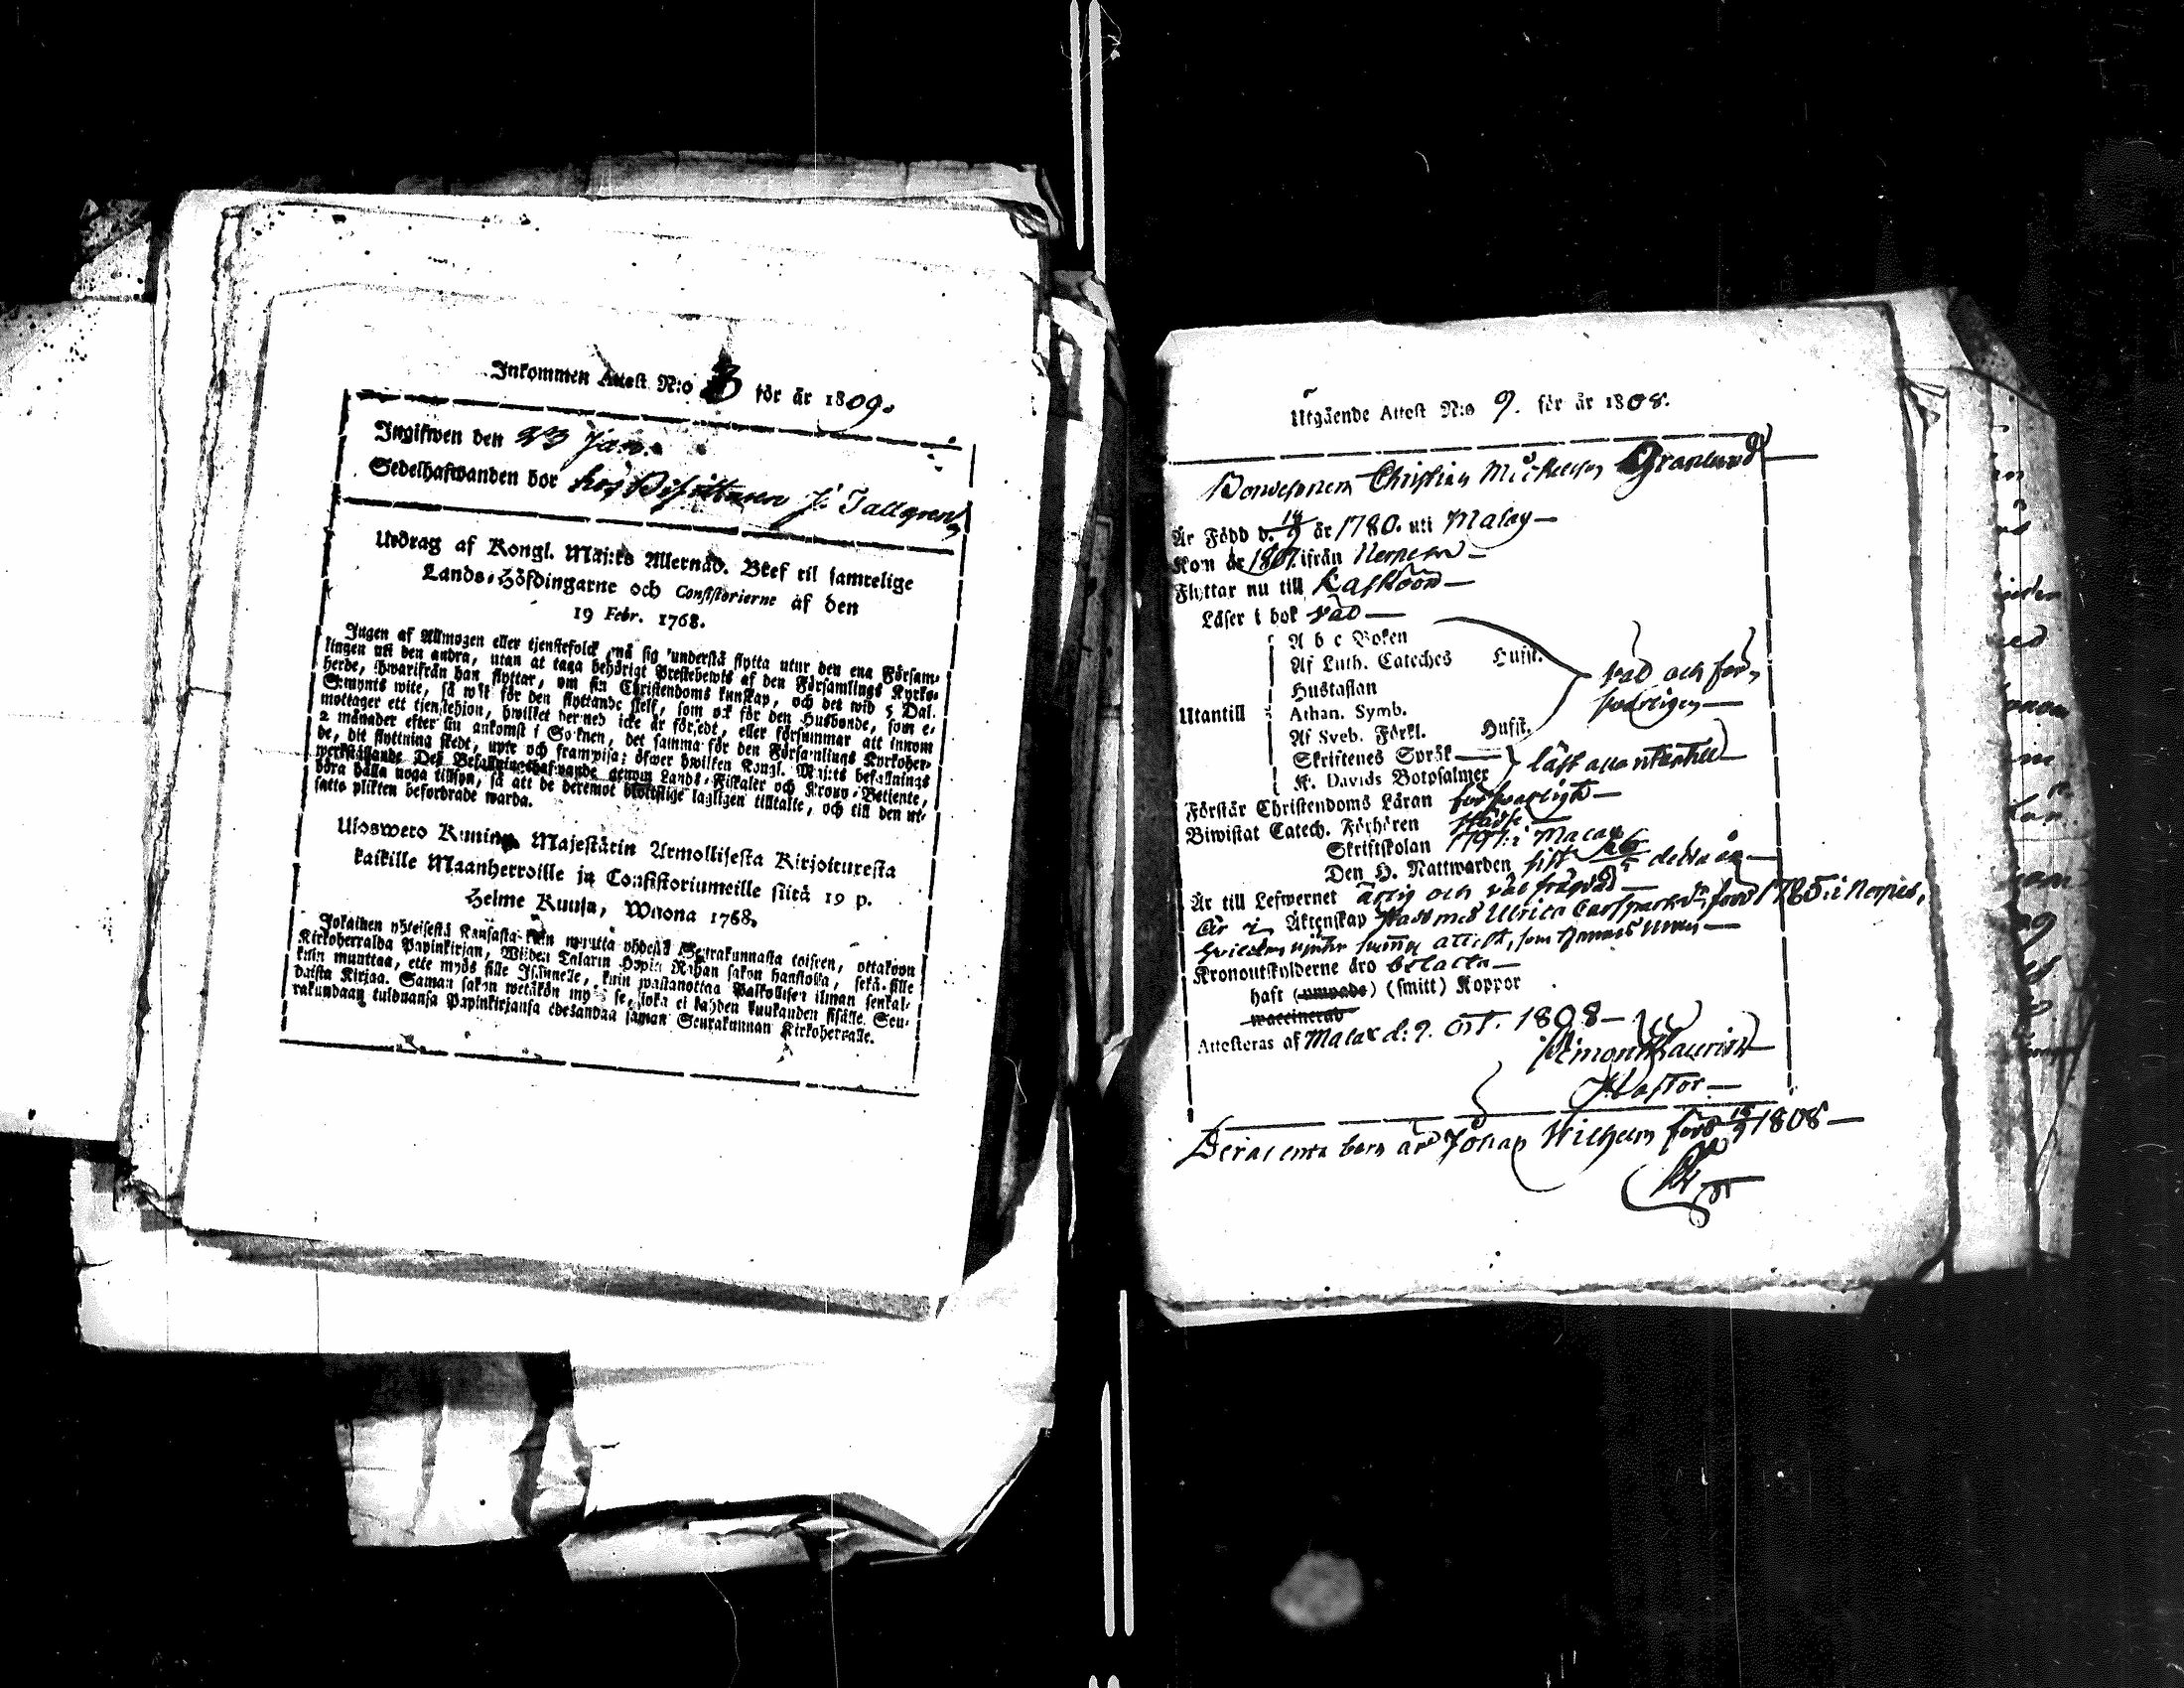 Inkommen Attest N:o 3 för år 1809.
Ingifwen den 23 Jan.
Sedelhafwanden bor hos J. Tallgren
Utdrag af Kongl. Maj:ts Allernåd. Bref til samtelige
Lands-Höfdingarne och Consistorierne af den
19 Febr. 1768.
Ingen af Allmogen eller tjenstefolck må sig understå flytta utur den ena Försam-
lingen uti den andra, utan at taga behörigt Prestebewis af den Församlings Kyrko-
herde, hwarifrån han flyttar, om sin Christendoms kunskap, och det wid 5 Dal.
S:mynts wite, så wäl för den flyttande sielf, som ock för den Husbonde, som e-
mottager ett tjenstehion, hwilket dermed icke är försedt, eller försummar att innom
2 månader efter sin ankomst i Soknen, det samma för den Församlings Kyrkoher-
de, dit flyttning skedt, upte och frampisa; öfwer hwilken Kongl. Maj:ts befallnings
werkställande Des Befallningshafwande genom Lands-Fiskaler och Krono-Betjente,
böra hålla noga tillsyn, så att de deremot brottslige lagligen tilltalte, och till den ut-
satte plikten befordrade warda.
Uloswero Kuning. Majestärin Armollisesta Kirjoituxesta
kaikille Maanherroille ja Consistoriumeille siitä 19 p.
Helme Kuusa, Wuonna 1768.
Jokainen yhteisestä Kansasta kuin muutta yhdestä Seurakunnasta toiseen, ottakoon
Kirkoherralda Papinkirjan, Wiiden Talarin Hopia Rahan sakon haastolla, sekä sille
kuin muuttaa, ette myös sille Isännelle, kuin wastanottaa Palkollisen ilman senkal-
daista Kirjaa. Saman sakon wetäkön myös se, joka ei kahden kuukauden sisälle Seu-
rakundaan tulduansa Papinkirjansa edesandaa saman Seurakunnan Kirkoherralle.
Utgående Attest N:o 9. för år 1808.
Christian Michelsson Granlund
Är Född d. 18/9 år 1780. uti Malax
Kom år 1807. ifrån Nerpes
Flyttar nu till Kaskö
Läser i bok väl
A b c Boken
Af Luth. Cateches Husst.
Hustaflan
Utantill Athan. Symb.
Af Sveb. Förkl. Husst.
väl och för-
svarligen
Skriftenes Språk
K. Davids Botpsalmer
läst utantill
Förstår Christendoms Läran försvarligt
Biwistat Catech. Förhören
Skriftskolan 1797 i Malax
Den H. Nattwarden sist detta år
Är till Lefwernet ärlig och väl frägdad
Är i Äktenskap med Ulrica född 1785 i Nerpes,
samma attest, som
Kronoutskylderne äro betalta
haft (ympade) (smitt) Koppor
waccinerad
Attesteras af Malax d: 9. Oct. 1808
Pastor
Deras enda barn är Johan Wilhelm född 1808